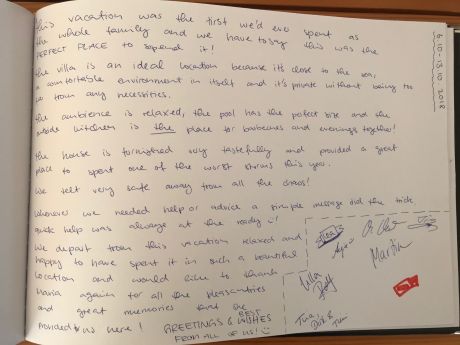 this vacation was the first we'd ever spent as
the whole family and we have to say this was the
PERFECT PLACE to spend it!
the villa is an ideal location because it's close to the sea,
a comfortable environment in itself and it's private without being too
far from any necessities.
the ambience is relaxed, the pool has the perfect size and the
outside kitchen is the place for barbecues and evenings together!
the house is furnished very tastefully and provided a great
place to spent one of the worst storms this year.
We felt very safe away from all the chaos!
Whenever we needed help or advice a simple message did the trick
quick help was always at the ready :)!
We depart from this vacation relaxed and
happy to have spent it in such a beautiful
location and would like to thank
Maria again for all the pleasantries
and great memories that
provided us here! GREETINGS & BEST WISHES
FROM ALL OF US! :)
6.10-13.10.2018
Martin
Ulla
Rolf
Tina,
Tim